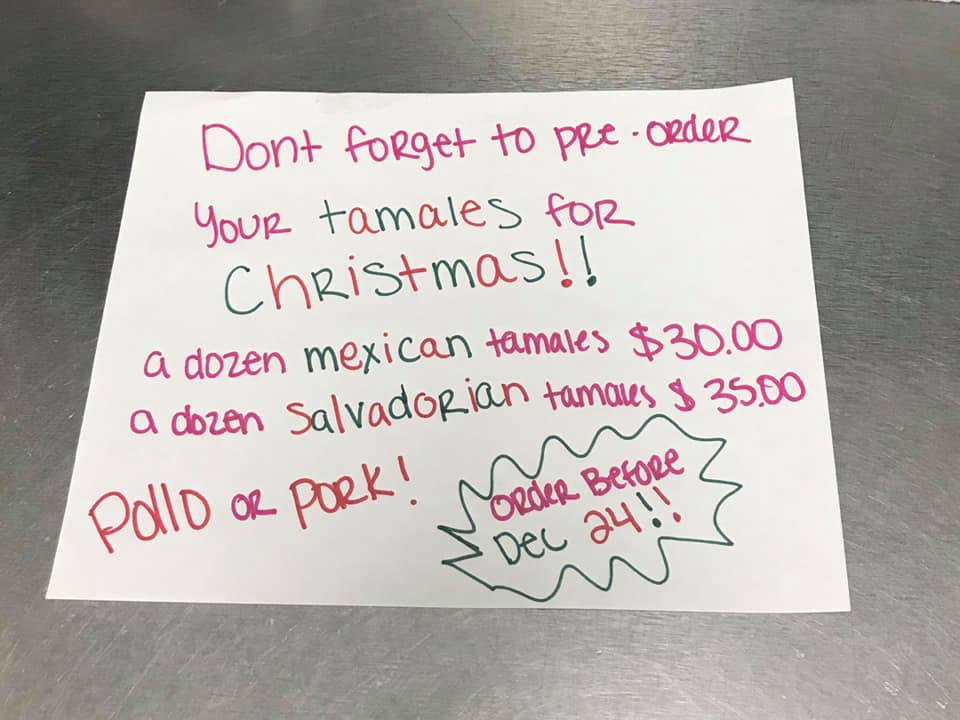 Dont forget to pre-order
your tamales for
Christmas!!
a dozen mexican tamales $30.00
a dozen Salvadorian tamales $35.00
Pollo or Pork!
Order Before
Dec 24!!